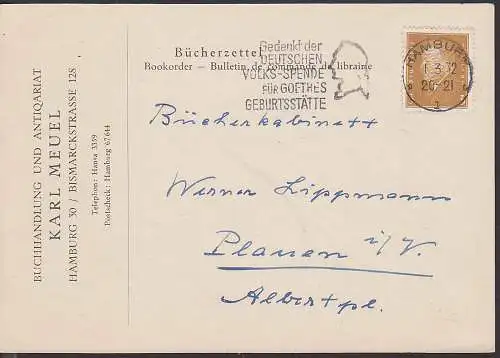 BUCHHANDLUNG UND ANTIQARIAT
KARL MEUEL
HAMBURG 30 / BISMARCKSTRASSE 128
Telephon: Hansa 3359
Postscheck: Hamburg 67 644
Bücherzettel
Bookorder – Bulletin de commande de libraire
Gedenkt der
DEUTSCHEN
VOLKS-SPENDE
FÜR GOETHES
GEBURTSSTÄTTE
HAMBURG
20-21
1
Bücherkabinett
Werner Lippmann
Plauen i/V.
Albertpl.